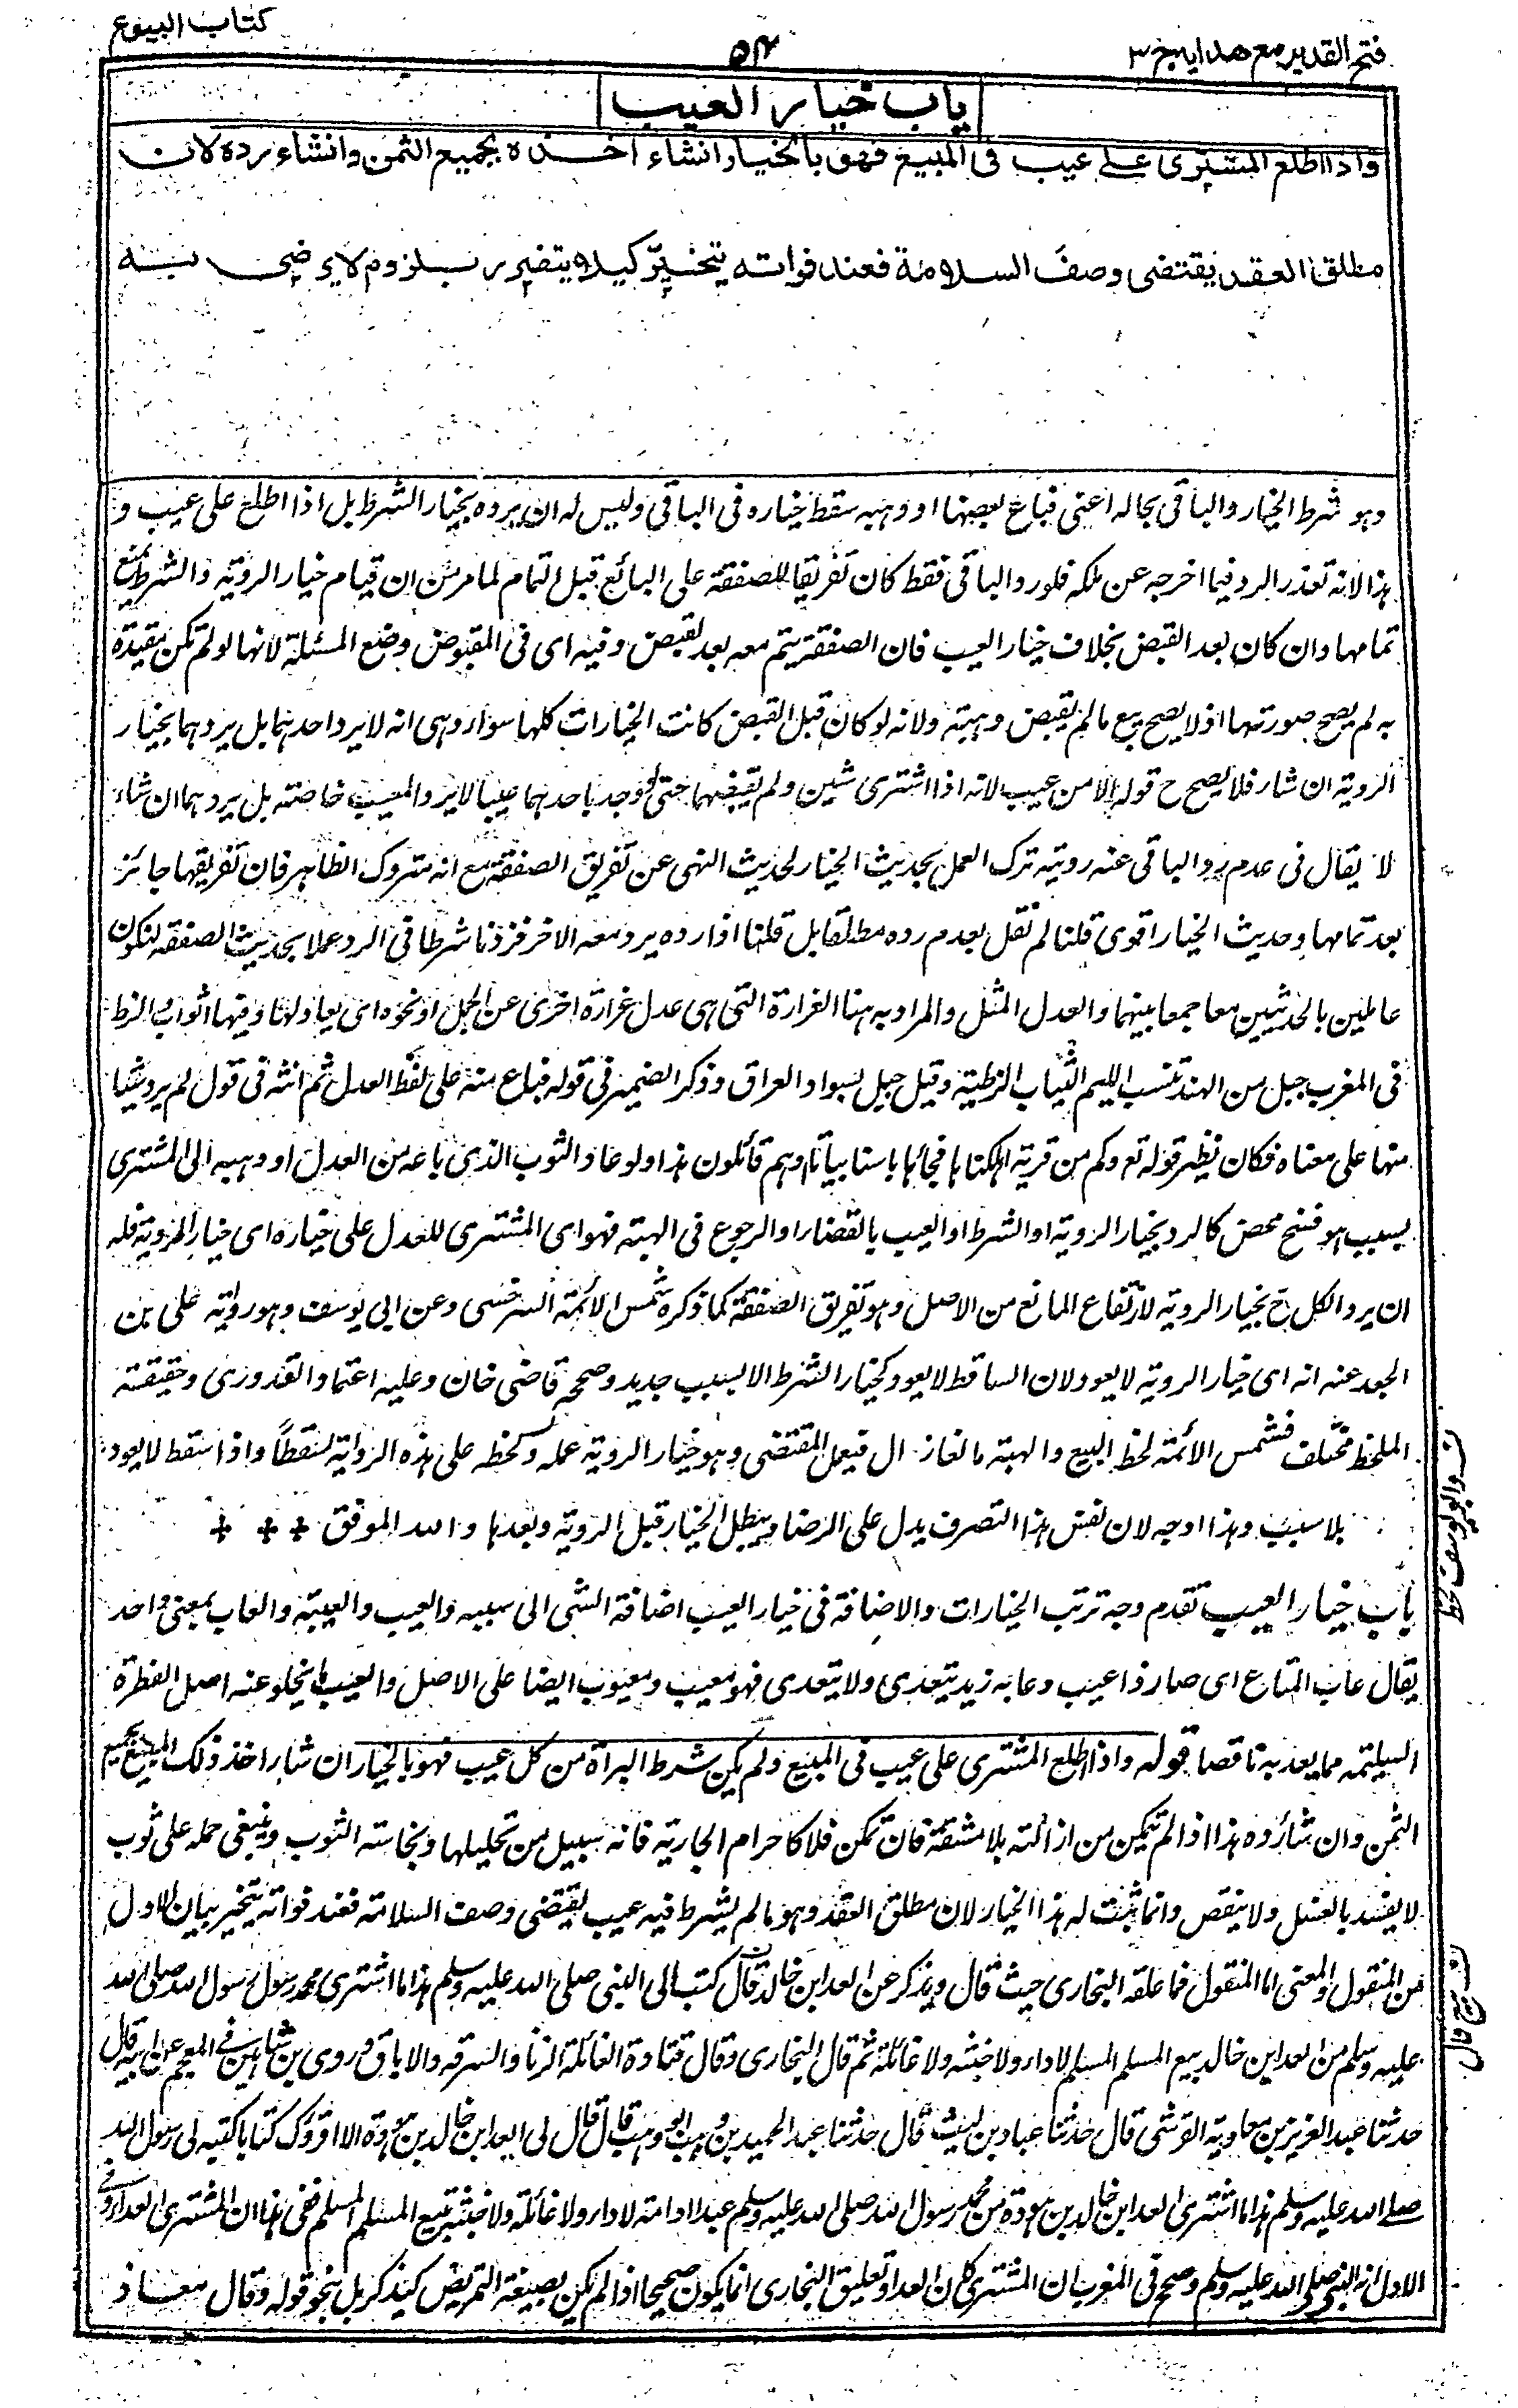 فتح القدير مع هدايہ ج ٣
٥٤
كتاب البيوع
باب خيار العيب
واذا اطلع المشترى على عيب فى المبيع فهو بالخيار ان شاء اخذه بجميع الثمن وان شاء رده لان
مطلق العقد يقتضى وصف السلامة فعند فواته يتخير كيلا يتضرر بلزوم لا يرضى به
وهو شرط الخيار والباقى بحاله اعنى فباع بعضها او وهبه سقط خياره فى الباقى وليس له ان يرده بخيار الشرط بل اذا اطلع على عيب و
هذا لانه تعذر الرد فيما اخرجه عن ملكه فلو رد الباقى فقط كان تفريقا للصفقة على البائع قبل التمام لما مر من ان قيام خيار الروية والشرط يمنع
تمامها وان كان بعد القبض بخلاف خيار العيب فان الصفقة يتم معه بعد القبض وفيه اى فى المقبوض وضع المسئلة لانها لو لم تكن مقيدة
به لم يصح صورتها اذ لا يصح بيع ما لم يقبض وهبته ولانه لو كان قبل القبض كانت الخيارات كلها سواء وهى انه لا يرد احدهما بل يردهما بخيار
الروية ان شاء فلا يصح ح قوله الا من عيب لانه اذا اشترى شيئين ولم يقبضهما حتى وجد باحدهما عيبا لا يرد المعيب خاصته بل يردهما ان شاء
لا يقال فى عدم رد الباقى عنه رويته ترك العمل بحديث الخيار لحديث النهى عن تفريق الصفقة مع انه متروك الظاهر فان تفريقها جائز
بعد تمامها وحديث الخيار اقوى قلنا لم نقل بعدم رده مطلقا بل قلنا اذا رده يرد معه الاخر فزدنا شرطا فى الرد عملا بحديث الصفقه لنكون
عاملين بالحديثين معا جمعا بينهما والعدل المثل والمراد به هنا الغرارة التى هى عدل غرارة اخرى عن الجمل او نحوه اى يعادلها وفيها اثواب والزط
فى المغرب جبل من الهند تنسب اليهم الثياب الزطية وقيل جيل بسواد العراق وذكر الضمير فى قوله فباع منه على لفظ العدل ثم انثه فى قول لم يرد شيئا
منها على معناه فكان نظير قوله تع وكم من قرية اهلكناها فجائها باسنا بياتا او هم قائلون هذا ولو عاد الثوب الذى باعه من العدل او وهبه الى المشترى
بسبب هو فسخ محض كالرد بخيار الروية او الشرط او العيب بالقضاء او الرجوع فى الهبة فهو اى المشترى للعدل على خياره اى خيار الروية فله
ان يرد الكل ح بخيار الروية لارتفاع المانع من الاصل وهو تفريق الصفقة كما ذكره شمس الائمة السرخسى وعن ابى يوسف وهو رواية على بن
الجعد عنه انه اى خيار الروية لا يعود لان الساقط لا يعود كخيار الشرط الا بسبب جديد وصححه قاضى خان وعليه اعتماد القدورى وحقيقته
الملحظ مختلف فشمس الائمة لحظ البيع والهبة مانعا زال فيعمل المقتضى وهو خيار الروية عمله ولحظ على هذه الرواية مسقطا واذا سقط لا يعود
بلا سبب وهذا اوجه لان نفس هذا التصرف يدل على الرضا ويبطل الخيار قبل الروية وبعدها والله الموفق + + +
باب خيار العيب تقدم وجه ترتب الخيارات والاضافة فى خيار العيب اضافة الشى الى سببه والعيب والعيبة والعاب بمعنى واحد
يقال عاب المتاع اى صار ذا عيب وعابه زيد يتعدى ولا يتعدى فهو معيب ومعيوب ايضا على الاصل والعيب ما يخلو عنه اصل الفطرة
السليمة مما يعد به ناقصا قوله واذا اطلع المشترى على عيب فى المبيع ولم يكن شرط البراة من كل عيب فهو بالخيار ان شاء اخذ ذلك المبيع بجميع
الثمن وان شاء رده هذا اذا لم يتمكن من ازالته بلا مشقة فان تمكن فلا كاحرام الجارية فانه بسبيل من تحليلها ونجاسة الثوب وينبغى حمله على ثوب
لا يفسد بالغسل ولا ينقص وانما ثبت له هذا الخيار لان مطلق العقد وهو ما لم يشرط فيه عيب يقتضى وصف السلامة فعند فواته يتخير بيان الاول
من المنقول والمعنى اما المنقول فما علقه البخارى حيث قال ويذكر عن العداء بن خالد قال كتب الى النبى صلى الله عليه وسلم هذا ما اشترى محمد رسول رسول الله صلى الله
عليه وسلم من العداء بن خالد بيع المسلم المسلم لا داء ولا خبثه ولا غائلة ثم قال البخارى وقال قتادة الغائلة الزنا والسرقه والاباق وروى بن شاهين فى المعجم عن ابيه قال
حدثنا عبد العزيز بن معاوية القرشى قال حدثنا عباد بن ليث قال حدثنا عبد المجيد بن وهب قال قال لى العداء بن خالد بن هوذة الا اقرؤك كتابا كتبه لى رسول الله
صلى الله عليه وسلم هذا ما اشترى العداء بن خالد بن هوذة من محمد رسول الله صلى الله عليه وسلم عبدا او امة لا داء ولا غائلة ولا خبثة بيع المسلم المسلم ففى هذا ان المشترى العداء وفى
الاول انه النبى صلى الله عليه وسلم وصحح فى المغرب ان المشترى كان العداء وتعليق البخارى انما يكون صحيحا اذا لم يكن بصيغة التمريض كيذكر بل بنحو قوله وقال معاذ